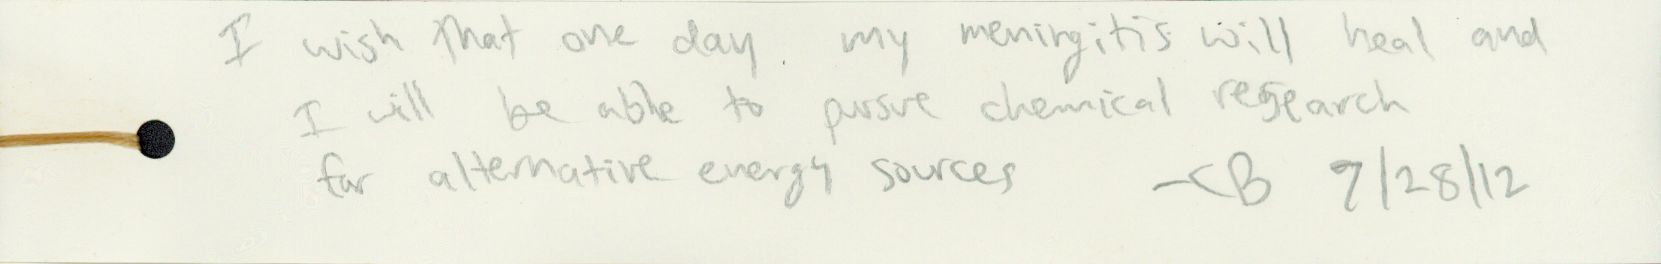 I wish that one day my meningitis will heal and
I will be able to pursue chemical research
for alternative energy sources -CB 9/28/12